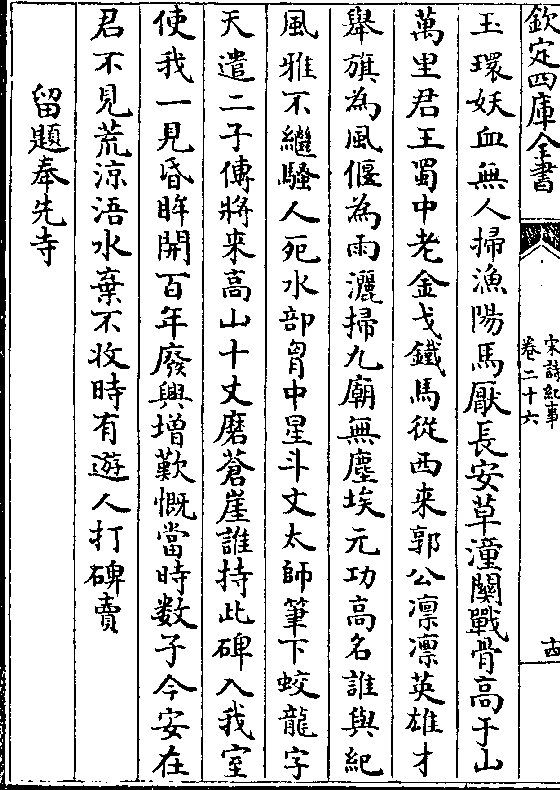 欽定四庫全書
宋詩紀事
卷二十六
十四
玉環妖血無人掃漁陽馬厭長安草潼關戰骨高于山
萬里君王蜀中老金戈鐵馬從西来郭公凛凛英雄才
舉旗為風偃為雨灑掃九廟無塵埃元功高名誰與紀
風雅不繼騷人死水部胷中星斗文太師筆下蛟龍字
天遣二子傳將来高山十丈磨蒼崖誰持此碑入我室
使我一見昏眸開百年廢興增歎慨當時数子今安在
君不見荒涼浯水棄不收時有遊人打碑賣
留題奉先寺